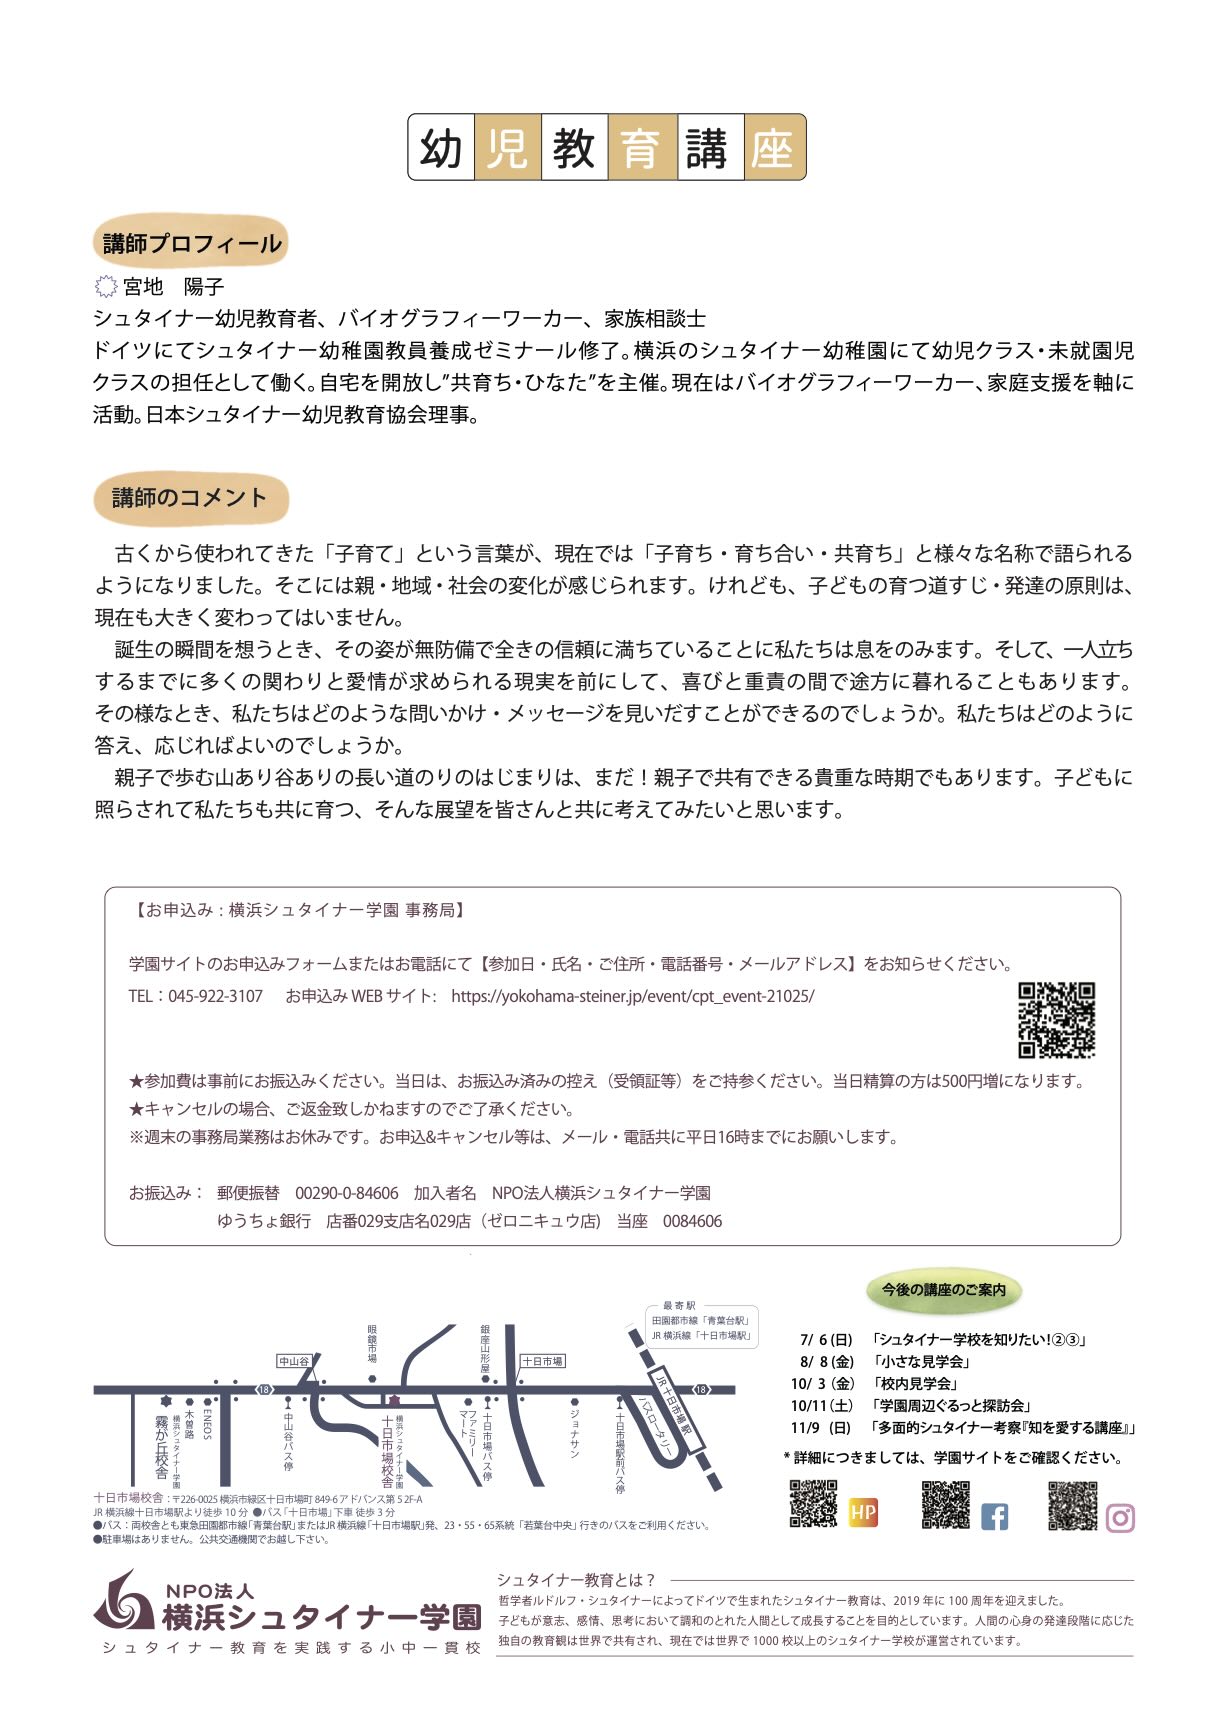 幼児教育講座
講師プロフィール
宮地　陽子
シュタイナー幼児教育者、バイオグラフィーワーカー、家族相談士
ドイツにてシュタイナー幼稚園教員養成ゼミナール修了。横浜のシュタイナー幼稚園にて幼児クラス・未就園児
クラスの担任として働く。自宅を開放し"共育ち・ひなた"を主催。現在はバイオグラフィーワーカー、家庭支援を軸に
活動。日本シュタイナー幼児教育協会理事。
講師のコメント
　古くから使われてきた「子育て」という言葉が、現在では「子育ち・育ち合い・共育ち」と様々な名称で語られる
ようになりました。そこには親・地域・社会の変化が感じられます。けれども、子どもの育つ道すじ・発達の原則は、
現在も大きく変わってはいません。
　誕生の瞬間を想うとき、その姿が無防備で全きの信頼に満ちていることに私たちは息をのみます。そして、一人立ち
するまでに多くの関わりと愛情が求められる現実を前にして、喜びと重責の間で途方に暮れることもあります。
その様なとき、私たちはどのような問いかけ・メッセージを見いだすことができるのでしょうか。私たちはどのように
答え、応じればよいのでしょうか。
　親子で歩む山あり谷ありの長い道のりのはじまりは、まだ！親子で共有できる貴重な時期でもあります。子どもに
照らされて私たちも共に育つ、そんな展望を皆さんと共に考えてみたいと思います。
【お申込み : 横浜シュタイナー学園 事務局】
学園サイトのお申込みフォームまたはお電話にて【参加日・氏名・ご住所・電話番号・メールアドレス】をお知らせください。
TEL：045-922-3107　お申込み WEB サイト:　https://yokohama-steiner.jp/event/cpt_event-21025/
★参加費は事前にお振込みください。当日は、お振込み済みの控え（受領証等）をご持参ください。当日精算の方は500円増になります。
★キャンセルの場合、ご返金致しかねますのでご了承ください。
※週末の事務局業務はお休みです。お申込&キャンセル等は、メール・電話共に平日16時までにお願いします。
お振込み：　郵便振替　00290-0-84606　加入者名　NPO法人横浜シュタイナー学園
ゆうちょ銀行　店番029支店名029店（ゼロニキュウ店）　当座　0084606
最寄駅
田園都市線「青葉台駅」
JR 横浜線「十日市場駅」
眼鏡市場
銀座山形屋
中山谷
十日市場
18
18
JR十日市場駅
バスロータリー
横浜シュタイナー学園
霧が丘校舎
木曽路
ENEOS
中山谷バス停
横浜シュタイナー学園
十日市場校舎
ファミリーマート
十日市場バス停
ジョナサン
十日市場駅前バス停
十日市場校舎：〒226-0025 横浜市緑区十日市場町 849-6 アドバンス第 5 2F-A
JR 横浜線十日市場駅より徒歩 10 分 ●バス「十日市場」下車 徒歩 3 分
●バス：両校舎とも東急田園都市線「青葉台駅」またはJR 横浜線「十日市場駅」発、23・55・65系統「若葉台中央」行きのバスをご利用ください。
●駐車場はありません。公共交通機関でお越し下さい。
今後の講座のご案内
7/ 6 (日)　「シュタイナー学校を知りたい!②③」
8/ 8 (金)　「小さな見学会」
10/ 3 （金）　「校内見学会」
10/11（土）　「学園周辺ぐるっと探訪会」
11/9 （日）　「多面的シュタイナー考察『知を愛する講座』」
* 詳細につきましては、学園サイトをご確認ください。
HP
NPO法人
横浜シュタイナー学園
シュタイナー教育を実践する小中一貫校
シュタイナー教育とは？
哲学者ルドルフ・シュタイナーによってドイツで生まれたシュタイナー教育は、2019 年に 100 周年を迎えました。
子どもが意志、感情、思考において調和のとれた人間として成長することを目的としています。人間の心身の発達段階に応じた
独自の教育観は世界で共有され、現在では世界で 1000 校以上のシュタイナー学校が運営されています。